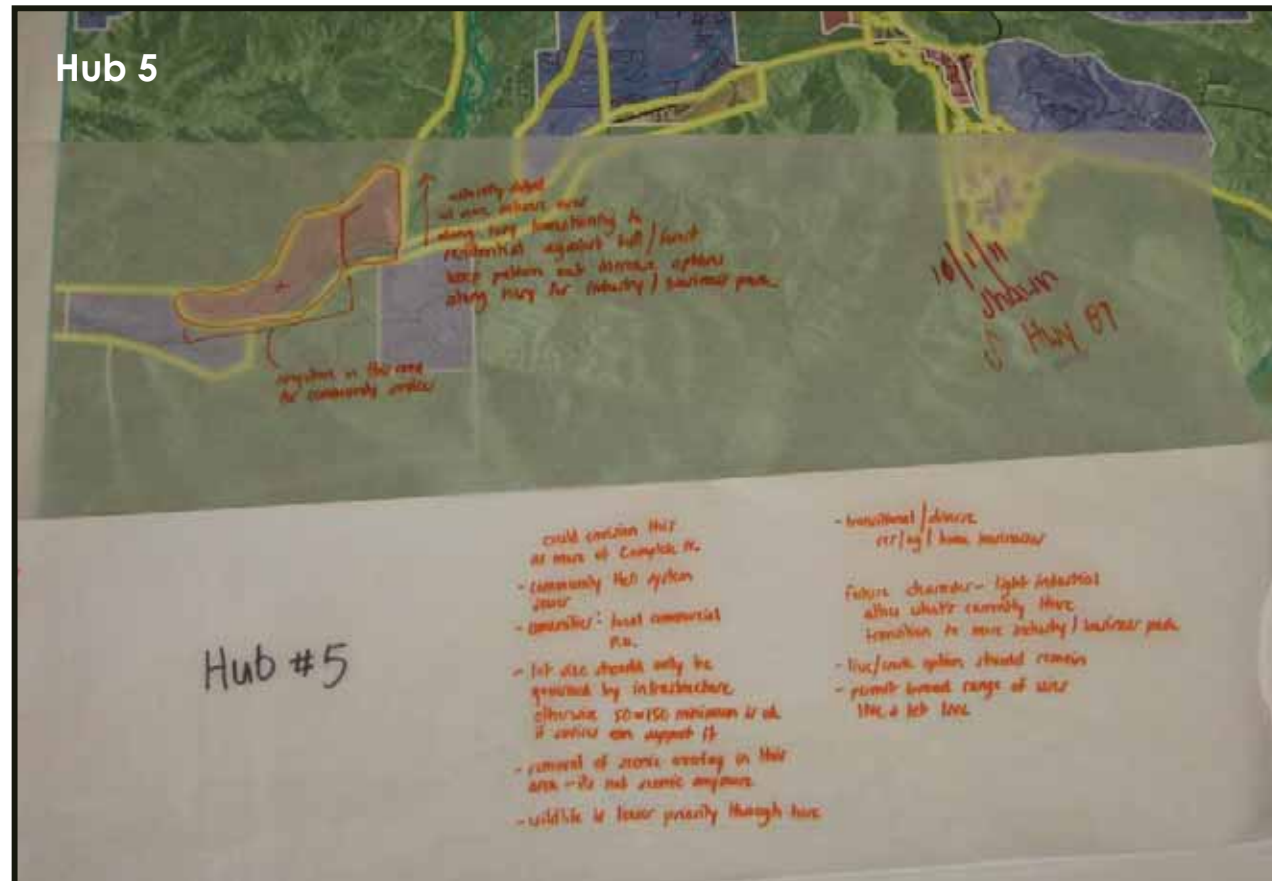 Hub 5
along hwy transitioning to
residential against butt / forest
keep pattern but diverse options
along hwy for industry / business park
in this area
for community services
10/1/11
Shawn
S Hwy 89
Hub #5
could envision this
as more of Complete N.
- community H2O system
sewer
- amenities: local commercial
- lot size should only be
governed by infrastructure
otherwise 50x150 minimum is ok
if service can support it
- removal of scenic overlay in this
area - its not scenic anymore
- wildlife is lower priority through here
- transitional / diverse
res / ag / home businesses
future character - light industrial
allow what's currently there
transition to more industry / business park
- live/work option should remain
- permit broad range of uses
like a